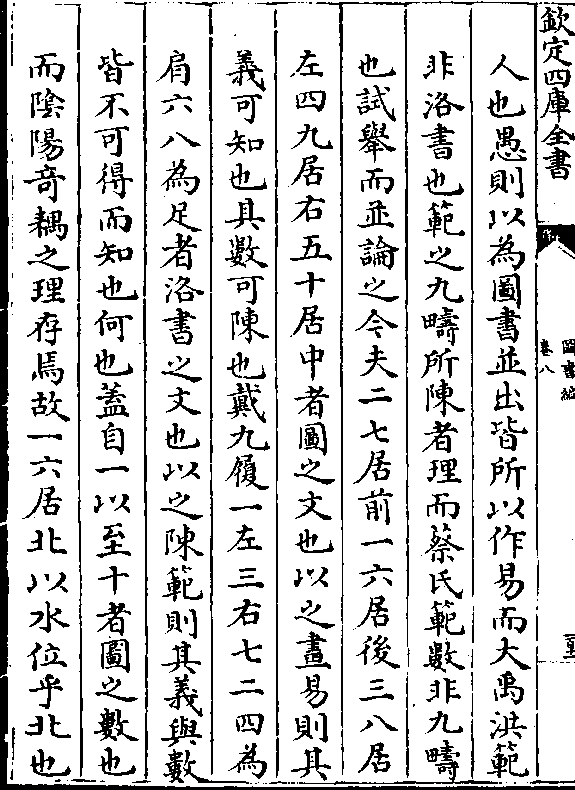 欽定四庫全書
圖書編
卷八
人也愚則以為圖書並出皆所以作易而大禹洪範
非洛書也範之九疇所陳者理而蔡氏範數非九疇
也試舉而並論之今夫二七居前一六居後三八居
左四九居右五十居中者圖之文也以之畫易則其
義可知也具數可陳也戴九履一左三右七二四為
肩六八為足者洛書之文也以之陳範則其義與數
皆不可得而知也何也蓋自一以至十者圖之數也
而陰陽奇耦之理存焉故一六居北以水位乎北也